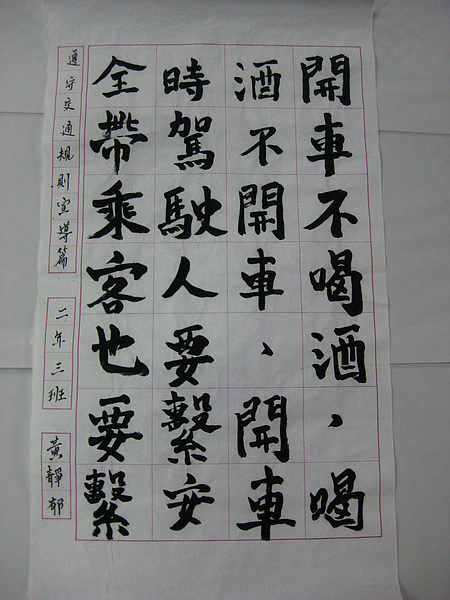 開車不喝酒，喝
酒不開車、開車
時駕駛人要繫安
全帶乘客也要繫
遵守交通規則宣導篇
二年三班
黃靜郁